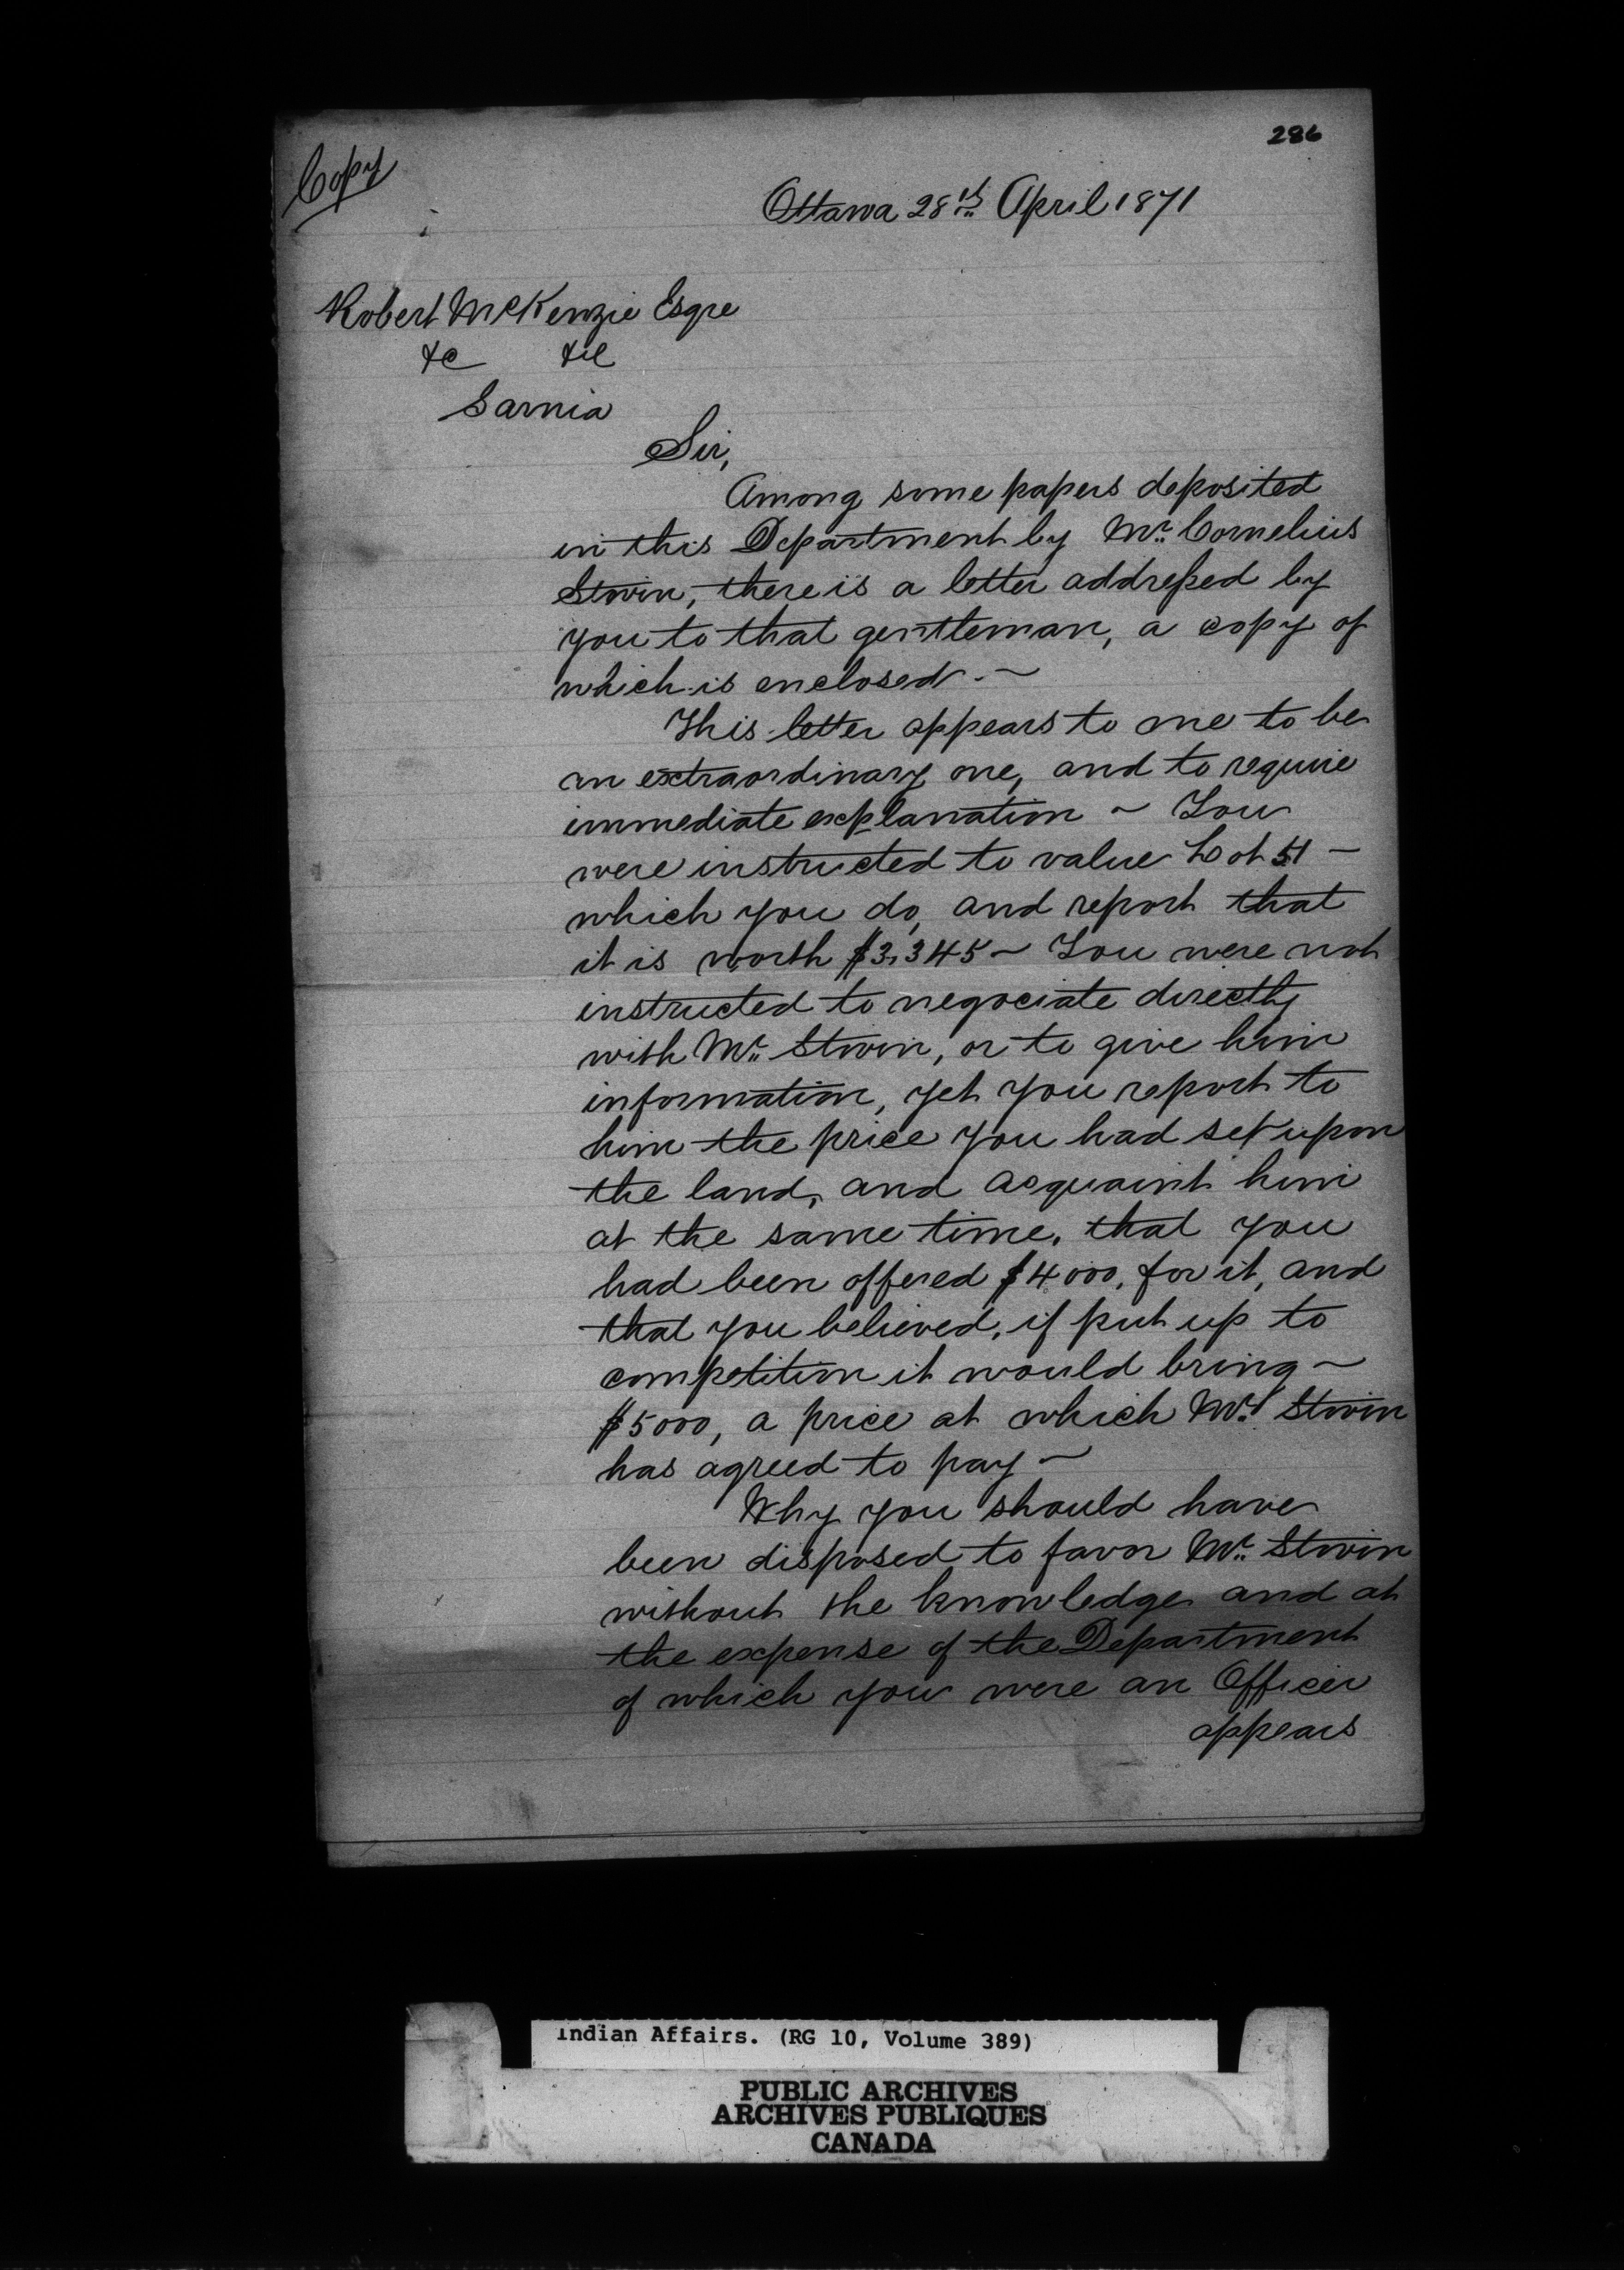 286
Copy
Ottawa 28th April 1871
Robert McKenzie Esqre
&c &c
Sarnia
Sir,
Among some papers deposited
in this Department by Mr. Cornelius
Stovin, there is a letter addressed by
you to that gentleman, a copy of
which is enclosed. ~
This letter appears to me to be
an extraordinary one, and to require
immediate explanation ~ You
were instructed to value Lot 51 ~
which you do, and report that
it is worth $3,345 ~ You were not
instructed to negociate directly
with Mr. Stovin, or to give him
information, yet you report to
him the price you had set upon
the land, and acquaint him
at the same time, that you
had been offered $4000, for it, and
that you believed, if put up to
competition it would bring ~
$5000, a price at which Mr. Stovin
has agreed to pay ~
Why you should have
been disposed to favor Mr. Stovin
without the knowledge and at
the expense of the Department
of which you were an Officer
appears
Indian Affairs. (RG 10, Volume 389)
PUBLIC ARCHIVES
ARCHIVES PUBLIQUES
CANADA